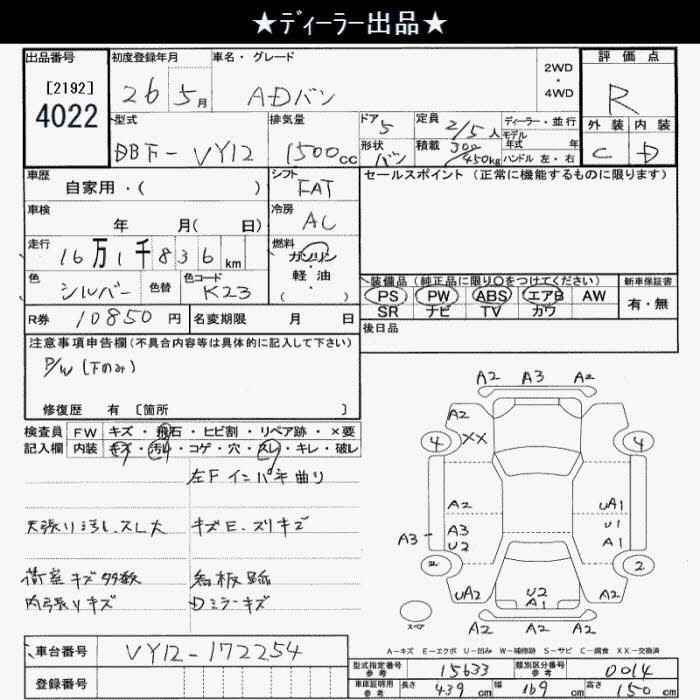 ★ディーラー出品★
出品番号
[2192]
4022
初度登録年月
26 5月
車名・グレード
ADバン
2WD
・
4WD
評価点
R
外装 内装
C D
型式
DBF-VY12
排気量
1500cc
ドア
5
形状
バン
定員
2/5人
積載
300/450kg
ディーラー・並行
モデル
年式 年
ハンドル 左・右
車歴
自家用・( )
シフト
FAT
セールスポイント(正常に機能するものに限ります)
車検
年 月( 日)
冷房
AC
走行
16万1千836km
燃料
ガソリン
・
軽油
( )
色
シルバー
色替
色コード
K23
装備品(純正品に限り○をつけてください)
PS PW ABS エアB AW
SR ナビ TV カワ
新車保証書
有・無
R券 10850円
名変期限 月 日
後日品
注意事項申告欄(不具合内容等は具体的に記入して下さい)
P/W(下のみ)
修復歴 有 [箇所 ]
検査員
記入欄
FW キズ・飛石・ヒビ割・リペア跡・×要
内装 キズ・汚れ・コゲ・穴・スレ・キレ・破レ
左Fインパネ曲り
天張り汚し、スレ大
キズE、スリキズ
荷室キズ多数
内張りキズ
Dミラーキズ
A2 A3 A2
A2
XX
4 4
A2
A3
A3
U2
UA1
U1
A1
2 2
UA2
U2
A1
A2
A2 A2 A2
スペア
A-キズ E-エクボ U-凹み W-補修跡 S-サビ C-腐食 XX-交換済
車台番号 VY12-172254
登録番号
型式指定番号
参考
15633
類別区分番号
参考
0014
車庫証明用
参考
長さ 439cm 幅 169cm 高さ 150cm